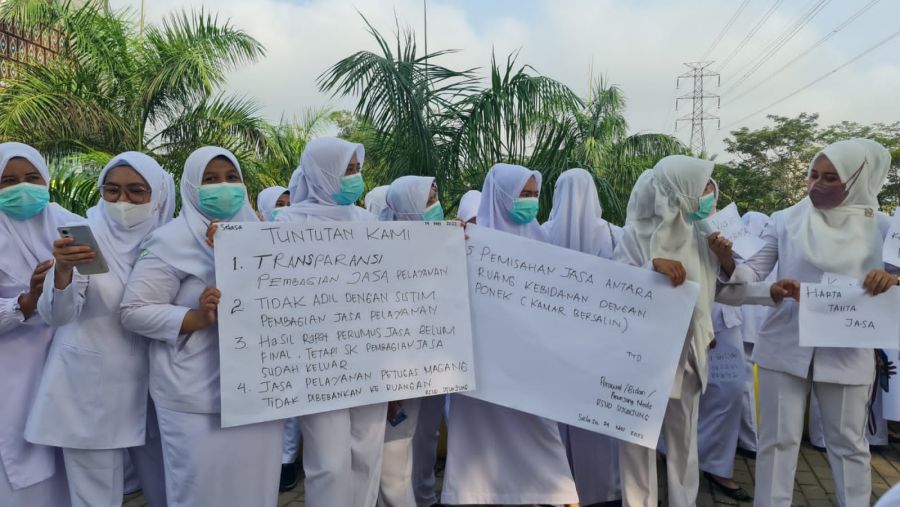 Selasa
TUNTUTAN KAMI
1. TRANSPARANSI
PEMBAGIAN JASA PELAYANAN
2 TIDAK ADIL DENGAN SISTIM
PEMBAGIAN JASA PELAYANAN
3 HASIL RAPAT PERUMUS JASA BELUM
FINAL. TETAPI SK PEMBAGIAN JASA
SUDAH KELUAR.
4. JASA PELAYANAN PETUGAS MAGANG
TIDAK DIBEBANKAN KE RUANGAN
5 PEMISAHAN JASA ANTARA
RUANG KEBIDANAN DENGAN
PONEK (KAMAR BERSALIN)
TTD
Perawat/Bidan/
RSUD
HARTA
TAHTA
JASA